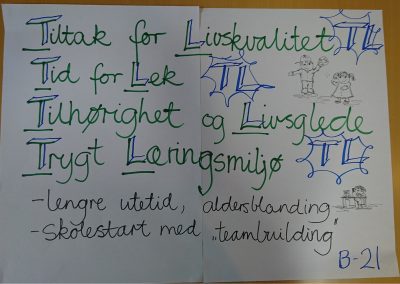 Tiltak for Livskvalitet, TL
Tid for Lek TL
Tilhørighet og Livsglede
Trygt Læringsmiljø TL
- lengre utetid, aldersblanding
- Skolestart med „teambuilding"
B-21